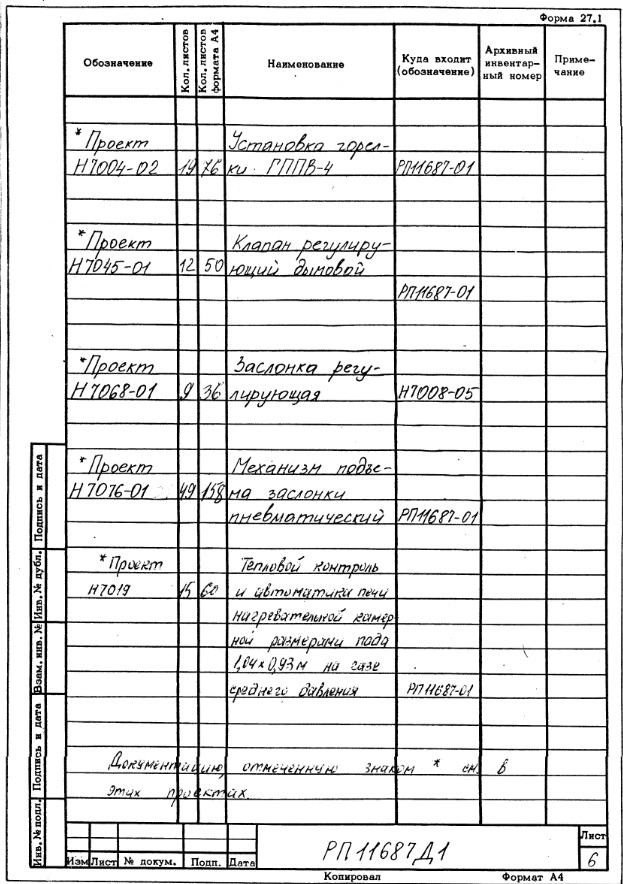 Форма 27.1
Обозначение
Кол. листов
Кол. листов формата А4
Наименование
Куда входит (обозначение)
Архивный инвентарный номер
Примечание
* Проект Установка горел-
Н7004-02 19 76 ки ГППВ-4 РП11687-01
* Проект Клапан регулиру-
Н7045-01 12 50 ющий дымовой
РП11687-01
* Проект Заслонка регу-
Н7068-01 9 36 лирующая Н7008-05
* Проект Механизм подъе-
Н7076-01 49 158 ма заслонки
пневматический РП11687-01
* Проект Тепловой контроль
Н7019 15 60 и автоматика печи
нагревательной камер
ной размерами пода
1,04×0,93м на газе
среднего давления РП11687-01
Документацию, отмеченную знаком * см. в
этих проектах.
Инв. № подл. Подпись и дата Взам. инв. № Инв. № дубл. Подпись и дата
РП11687Д1
Лист
6
Изм Лист № докум. Подп. Дата
Копировал Формат А4